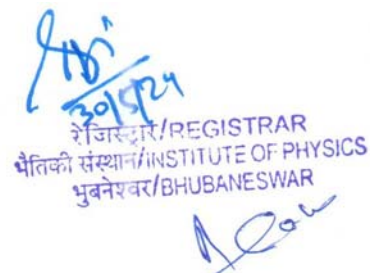 30/5/24
रेजिस्ट्रार/REGISTRAR
भौतिकी संस्थान/INSTITUTE OF PHYSICS
भुबनेश्वर/BHUBANESWAR